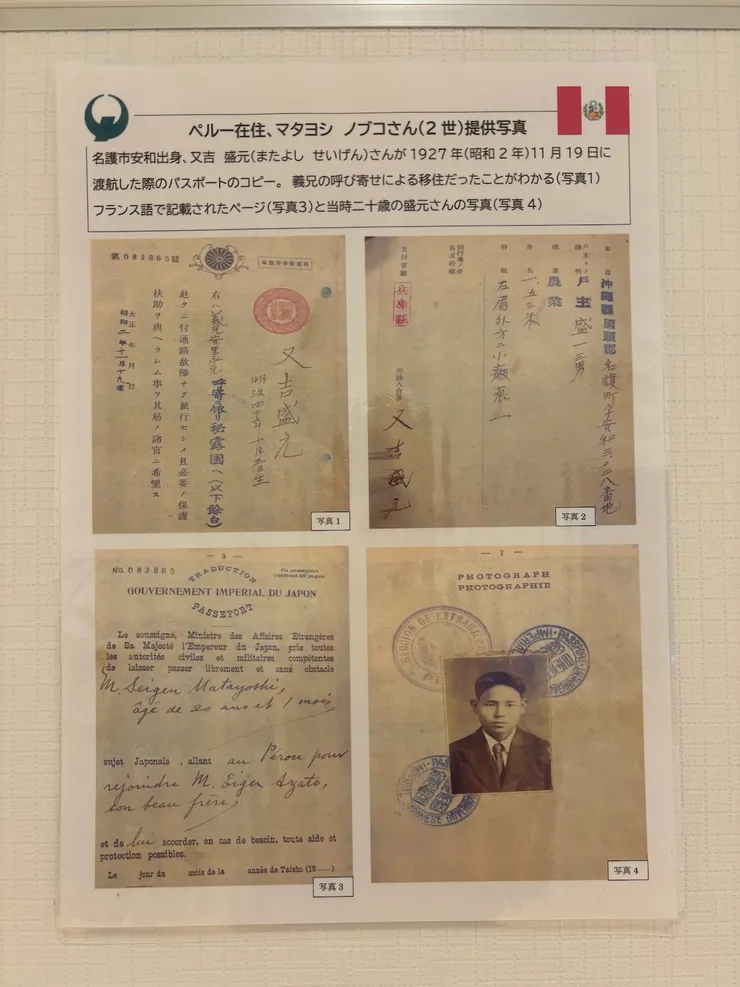 ペルー在住、マタヨシ ノブコさん(2世)提供写真
名護市安和出身、又吉 盛元(またよし せいげん)さんが1927年(昭和2年)11月19日に
渡航した際のパスポートのコピー。 義兄の呼び寄せによる移住だったことがわかる(写真1)
フランス語で記載されたページ(写真3)と当時二十歳の盛元さんの写真(写真4)
第083865號
又吉盛元
右ハ義兄安里永元呼寄ニ依リ秘露國ヘ(以下餘白)
赴クニ付通路故障ナク旅行セシメ且必要ノ保護
扶助ヲ與ヘラレム事ヲ其筋ノ諸官ニ希望ス
大正 年 月 日
昭和二年十一月十九日
写真1
本籍
沖縄縣國頭郡名護町字安和三〇二八番地
戸主 盛一三男
職業
農業
身長
一、五三米
特徴
右眉外方ニ小皺痕一
交付官廳
兵庫縣
又吉盛元
写真2
— 5 —
No. 083865
TRADUCTION
GOUVERNEMENT IMPERIAL DU JAPON
PASSEPORT
Le soussigné, Ministre des Affaires Etrangères
de Sa Majesté l'Empereur du Japon, prie toutes
les autorités civiles et militaires compétentes
de laisser passer librement et sans obstacle
M. Seigen Matayoshi,
âgé de 20 ans et 1 mois,
sujet Japonais, allant au Pérou pour
rejoindre M. Eigen Azato,
son beau frère,
et de lui accorder, en cas de besoin, toute aide et
protection possibles.
Le jour du mois de la année de Taisho (19—)
写真3
— 7 —
PHOTOGRAPH
PHOTOGRAPHIE
写真4